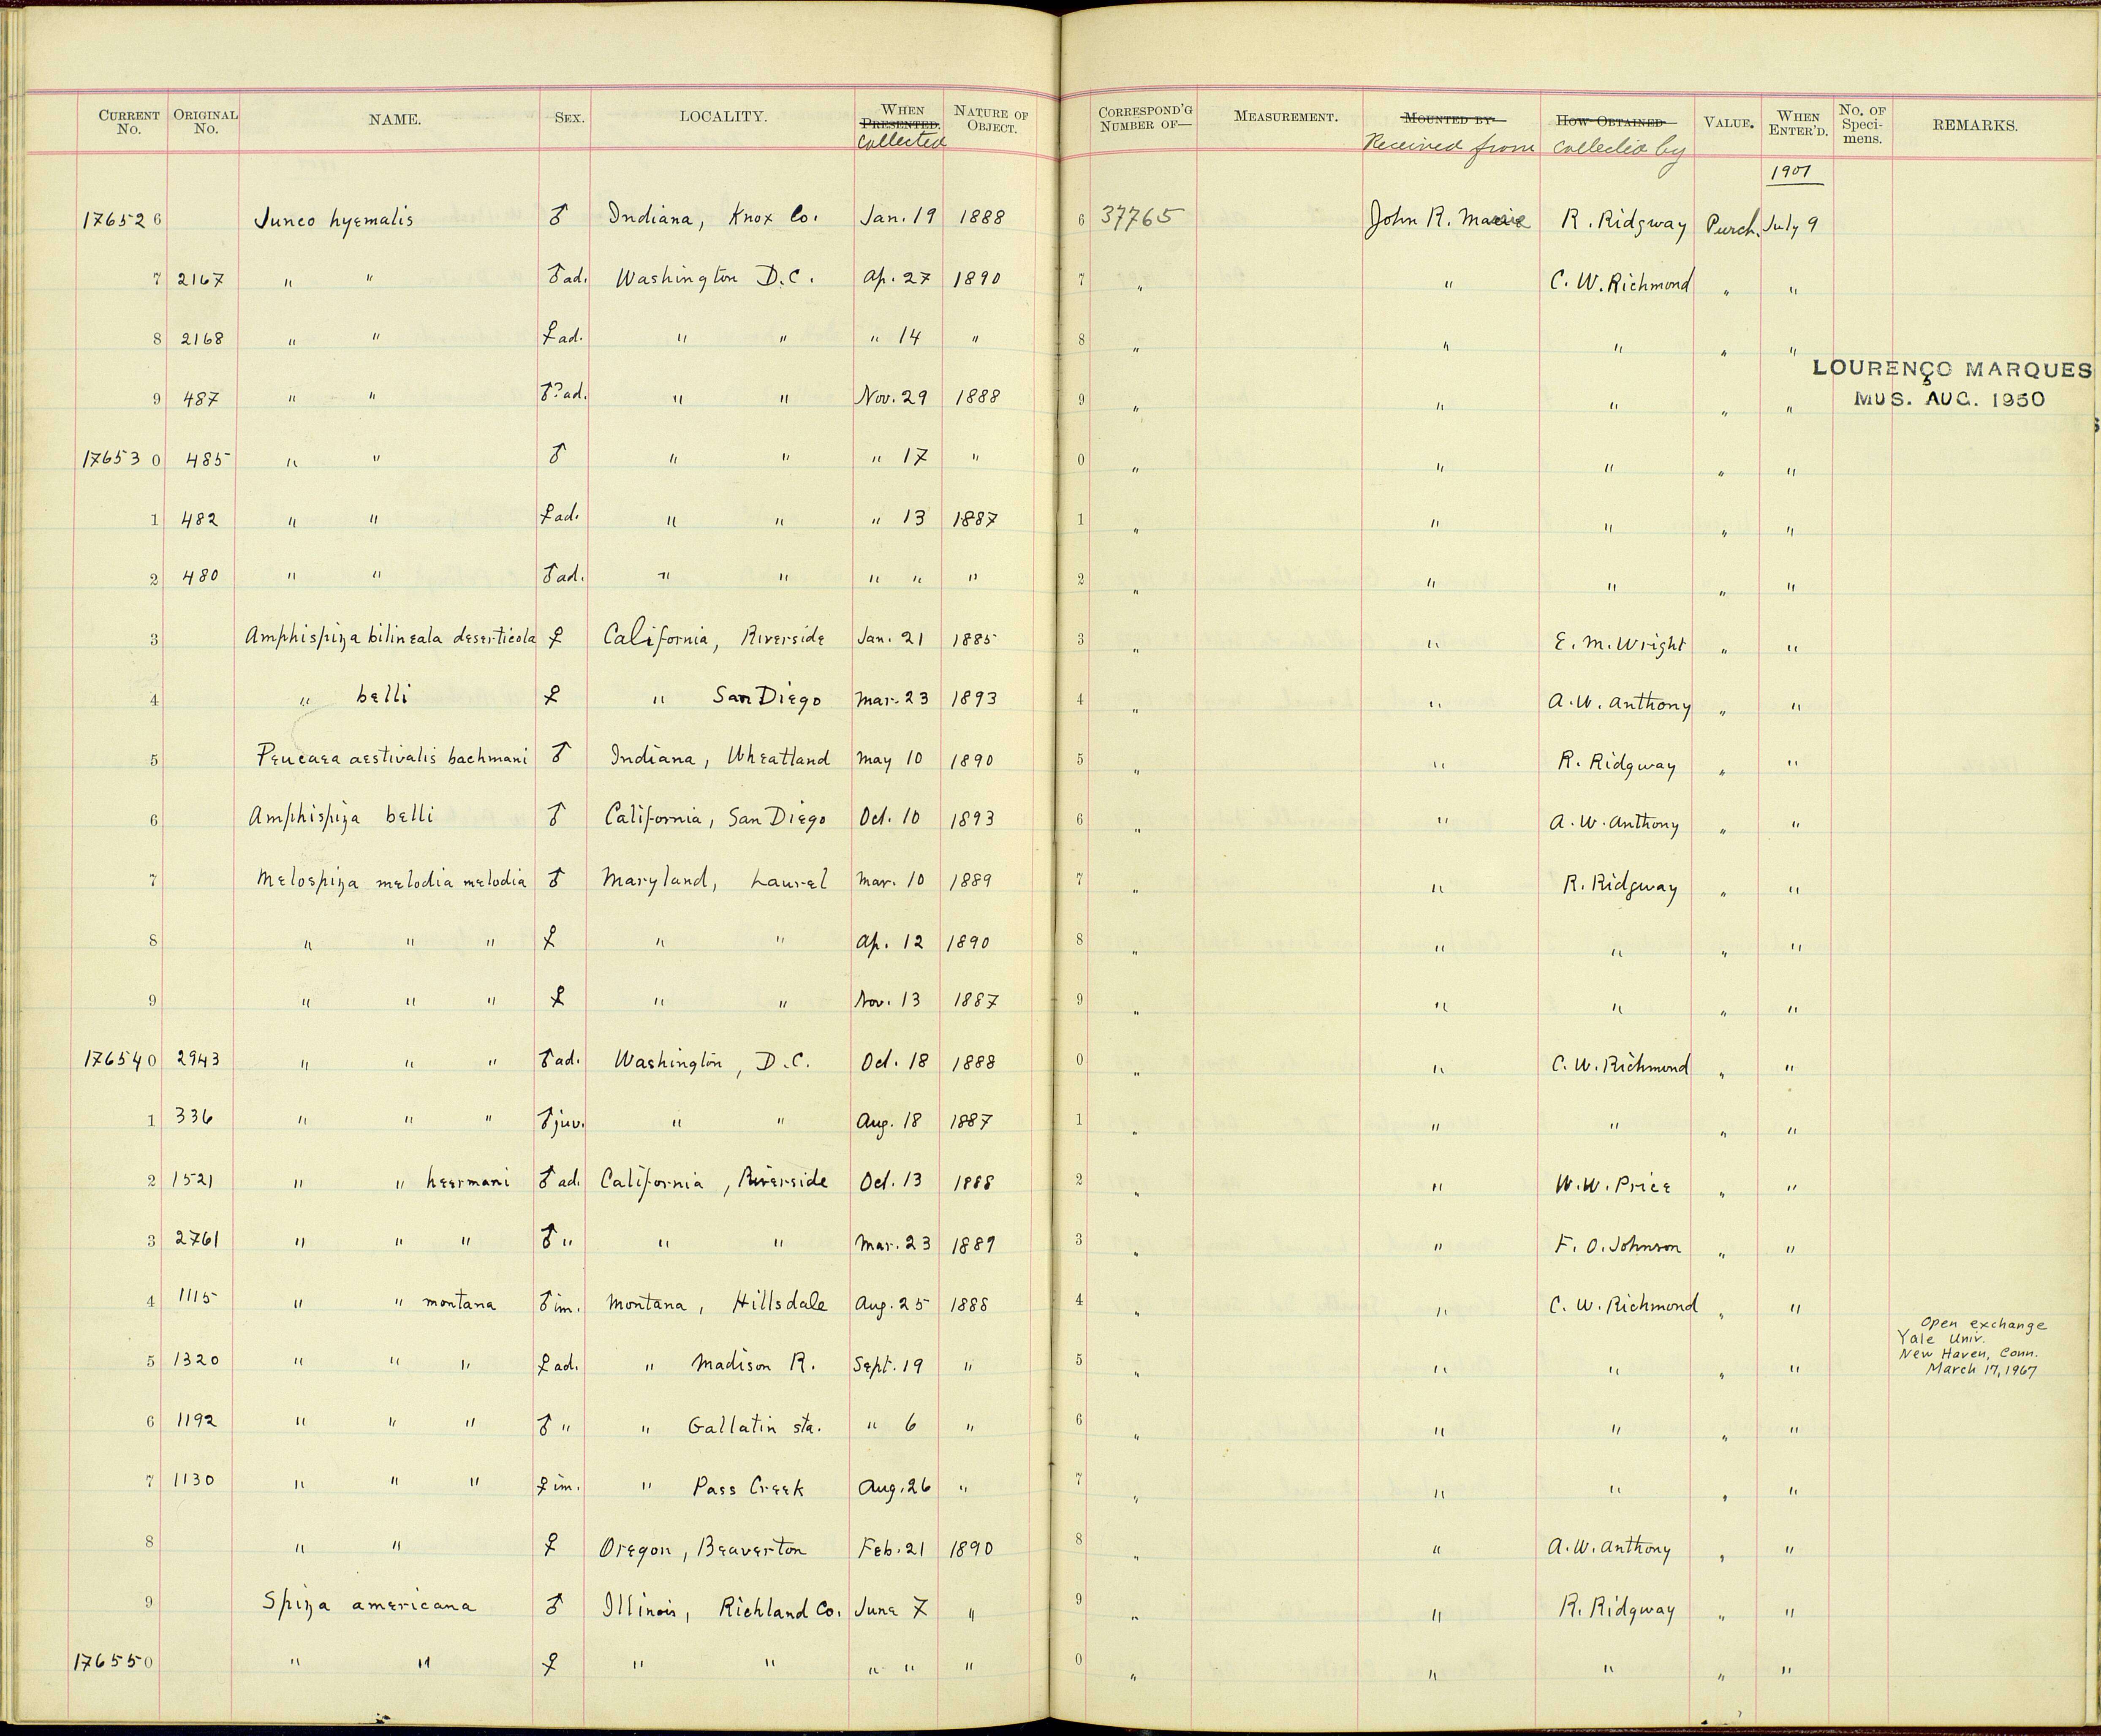 CURRENT No. ORIGINAL No. NAME. SEX. LOCALITY. WHEN PRESENTED. Collected NATURE OF OBJECT. CORRESPOND'G NUMBER OF— MEASUREMENT. MOUNTED BY- Received from HOW OBTAINED- Collected by VALUE. WHEN ENTER'D. No. OF Speci- mens. REMARKS.
1901
176526 Junco hyemalis ♂ Indiana, Knox Co. Jan. 19 1888 6 37765 John R. R. Ridgway Purch. July 9
7 2167 " " ♂ad. Washington D.C. Ap. 27 1890 7 " " C. W. Richmond " "
8 2168 " " ♀ad. " " " 14 " 8 " " " " "
LOURENÇO MARQUES
MUS. AUG. 1950
9 487 " " ♂?ad. " " Nov. 29 1888 9 " " " " "
176530 485 " " ♂ " " " 17 " 0 " " " " "
1 482 " " ♀ad. " " " 13 1887 1 " " " " "
2 480 " " ♂ad. " " " " " 2 " " " " "
3 Amphispiza bilineata deserticola ♀ California, Riverside Jan. 21 1885 3 " " E. M. Wright " "
4 " belli ♀ " San Diego Mar. 23 1893 4 " " A. W. Anthony " "
5 Peucaea aestivalis bachmani ♂ Indiana, Wheatland May 10 1890 5 " " R. Ridgway " "
6 Amphispiza belli ♂ California, San Diego Oct. 10 1893 6 " " A. W. Anthony " "
7 Melospiza melodia melodia ♂ Maryland, Laurel Mar. 10 1889 7 " " R. Ridgway " "
8 " " " ♀ " " Ap. 12 1890 8 " " " " "
9 " " " ♀ " " Nov. 13 1887 9 " " " " "
176540 2943 " " " ♂ad. Washington, D.C. Oct. 18 1888 0 " " C. W. Richmond " "
1 336 " " " ♂juv. " " Aug. 18 1887 1 " " " " "
2 1521 " " heermani ♂ad. California, Riverside Oct. 13 1888 2 " " W. W. Price " "
3 2761 " " " ♂ " " " Mar. 23 1889 3 " " F. O. Johnson " "
4 1115 " " montana ♂im. Montana, Hillsdale Aug. 25 1888 4 " " C. W. Richmond " "
Open exchange
Yale Univ.
New Haven, Conn.
March 17, 1967
5 1320 " " " ♀ad. " Madison R. Sept. 19 " 5 " " " " "
6 1192 " " " ♂ " " Gallatin sta. " 6 " 6 " " " " "
7 1130 " " " ♀im. " Pass Creek Aug. 26 " 7 " " " " "
8 " " ♀ Oregon, Beaverton Feb. 21 1890 8 " " A. W. Anthony " "
9 Spiza americana ♂ Illinois, Richland Co. June 7 " 9 " " R. Ridgway " "
176550 " " ♀ " " " " " 0 " " " " "